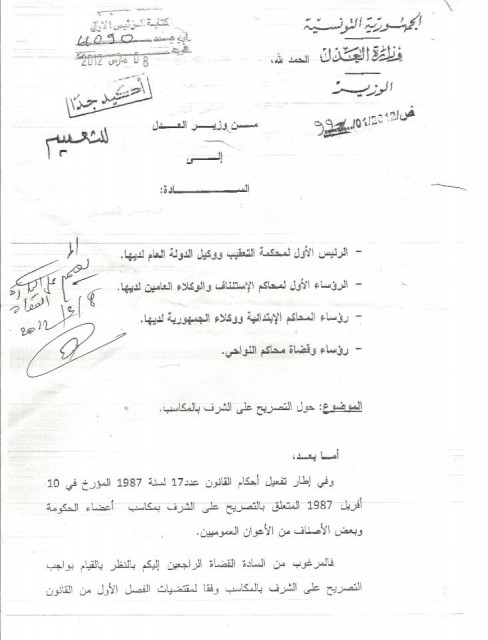 الجمهورية التونسية
وزارة العدل
الوزير
الحمد لله،
كتابة الرئيس الأول
4090
08 مارس 2012
أكيد جدا
للتعميم
ض/01/2012/
من وزير العدل
إلى
السادة:
– الرئيس الأول لمحكمة التعقيب ووكيل الدولة العام لديها.
– الرؤساء الأول لمحاكم الإستئناف والوكلاء العامين لديها.
– رؤساء المحاكم الإبتدائية ووكلاء الجمهورية لديها.
– رؤساء وقضاة محاكم النواحي.
2012/3/8
الموضوع: حول التصريح على الشرف بالمكاسب.
أما بعد،
وفي إطار تفعيل أحكام القانون عدد17 لسنة 1987 المؤرخ في 10
أفريل 1987 المتعلق بالتصريح على الشرف بمكاسب أعضاء الحكومة
وبعض الأصناف من الأعوان العموميين.
فالمرغوب من السادة القضاة الراجعين إليكم بالنظر بالقيام بواجب
التصريح على الشرف بالمكاسب وفقا لمقتضيات الفصل الأول من القانون